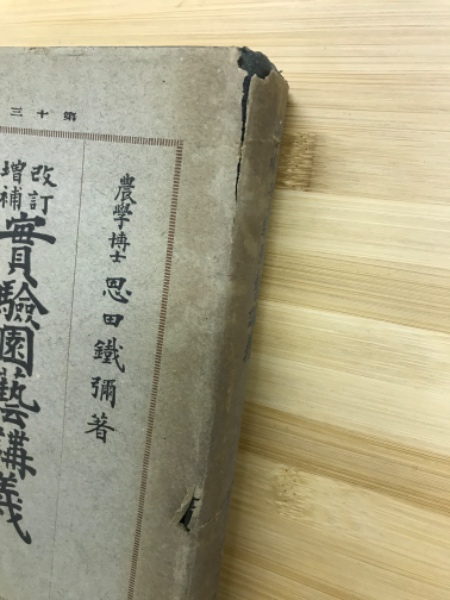 第十三
農學博士 恩田鐵彌著
改訂
增補
實驗園藝講義